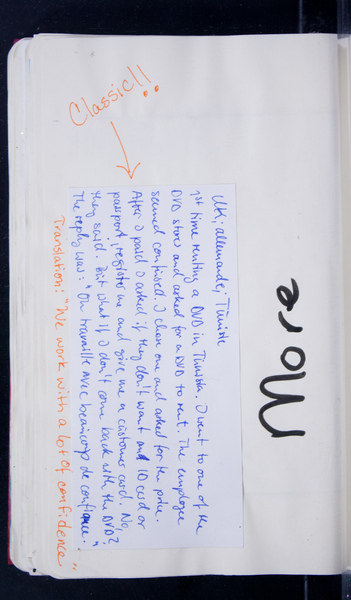 More
Classic!!
UK; allemande; Tunisie
1st time renting a DVD in Tunisia. I went to one of the
DVD stores and asked for a DVD to rent. The employee
seemed confused. I chose one and asked for the price.
After I paid I asked if they don't want and ID card or
passport, register me and give me a customer card. No,
they said. But what if I don't come back with the DVD?
The reply was: "On travaille avec beaucoup de confiance."
Translation: "We work with a lot of confidence"